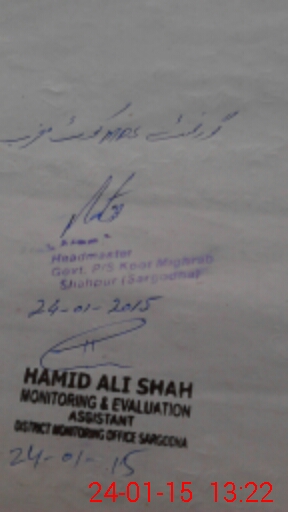 گورنمنٹ MPS کوٹ مغرب
Headmaster
Govt. P/S Koot Maghrab
Shahpur (Sargodha)
24-01-2015
HAMID ALI SHAH
MONITORING & EVALUATION
ASSISTANT
DISTRICT MONITORING OFFICE SARGODHA
24-01-15
24-01-15 13:22